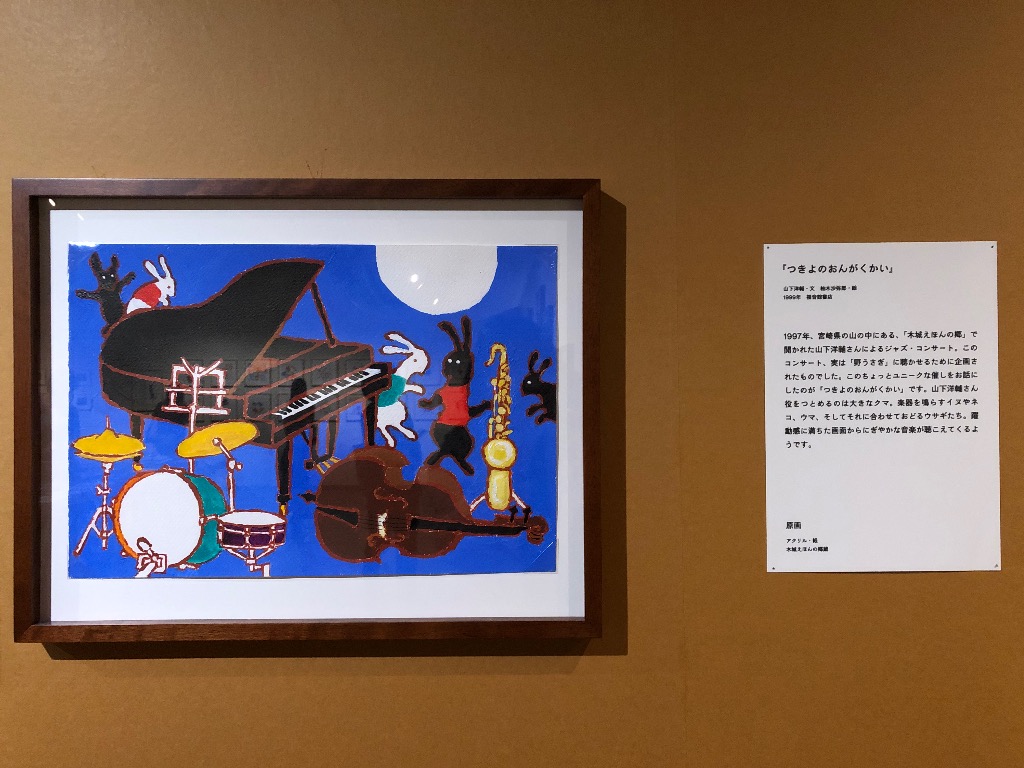 『つきよのおんがくかい』
山下洋輔・文　柚木沙弥郎・絵
1999年　福音館書店
1997年、宮崎県の山の中にある、「木城えほんの郷」で
開かれた山下洋輔さんによるジャズ・コンサート。この
コンサート、実は「野うさぎ」に聴かせるために企画さ
れたものでした。このちょっとユニークな催しをお話に
したのが『つきよのおんがくかい』です。山下洋輔さん
役をつとめるのは大きなクマ。楽器を鳴らすイヌやネ
コ、ウマ、そしてそれに合わせておどるウサギたち。躍
動感に満ちた画面からにぎやかな音楽が聴こえてくるよ
うです。
原画
アクリル・紙
木城えほんの郷蔵